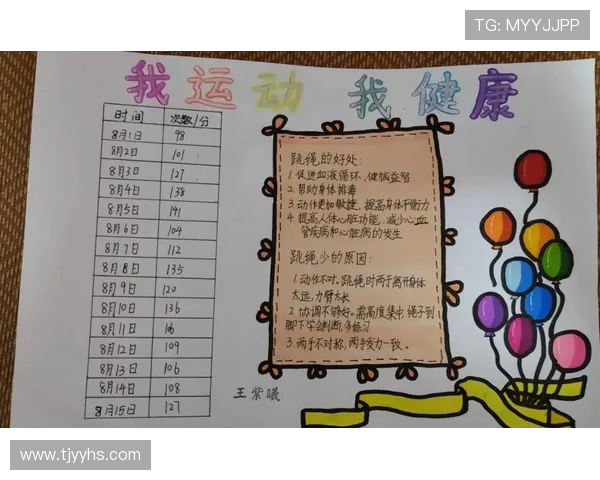 TG: MYYJJPP
我运动 我健康
时间 次数/分
8月1日 98
8月2日 101
8月3日 127
8月4日 138
8月5日 141
8月6日 104
8月7日 112
8月8日 135
8月9日 120
8月10日 136
8月11日
8月12日 109
8月13日 106
8月14日 108
8月15日 127
跳绳的好处:
1.促进血液循环,健脑益智
2.帮助身体排毒
3.动作更加敏捷,提高身体平衡力
4.提高人体心脏功能,减少心血
管疾病和心脏病的发生
跳绳少的原因:
1.动作不对。跳绳时两手离开身体
太远,力臂太长
2.协调不够好。需高度集中绳子到
脚下学会判断,多练习
3.两手不对称,两手发力一致。
王紫曦
www.tjyyhs.com